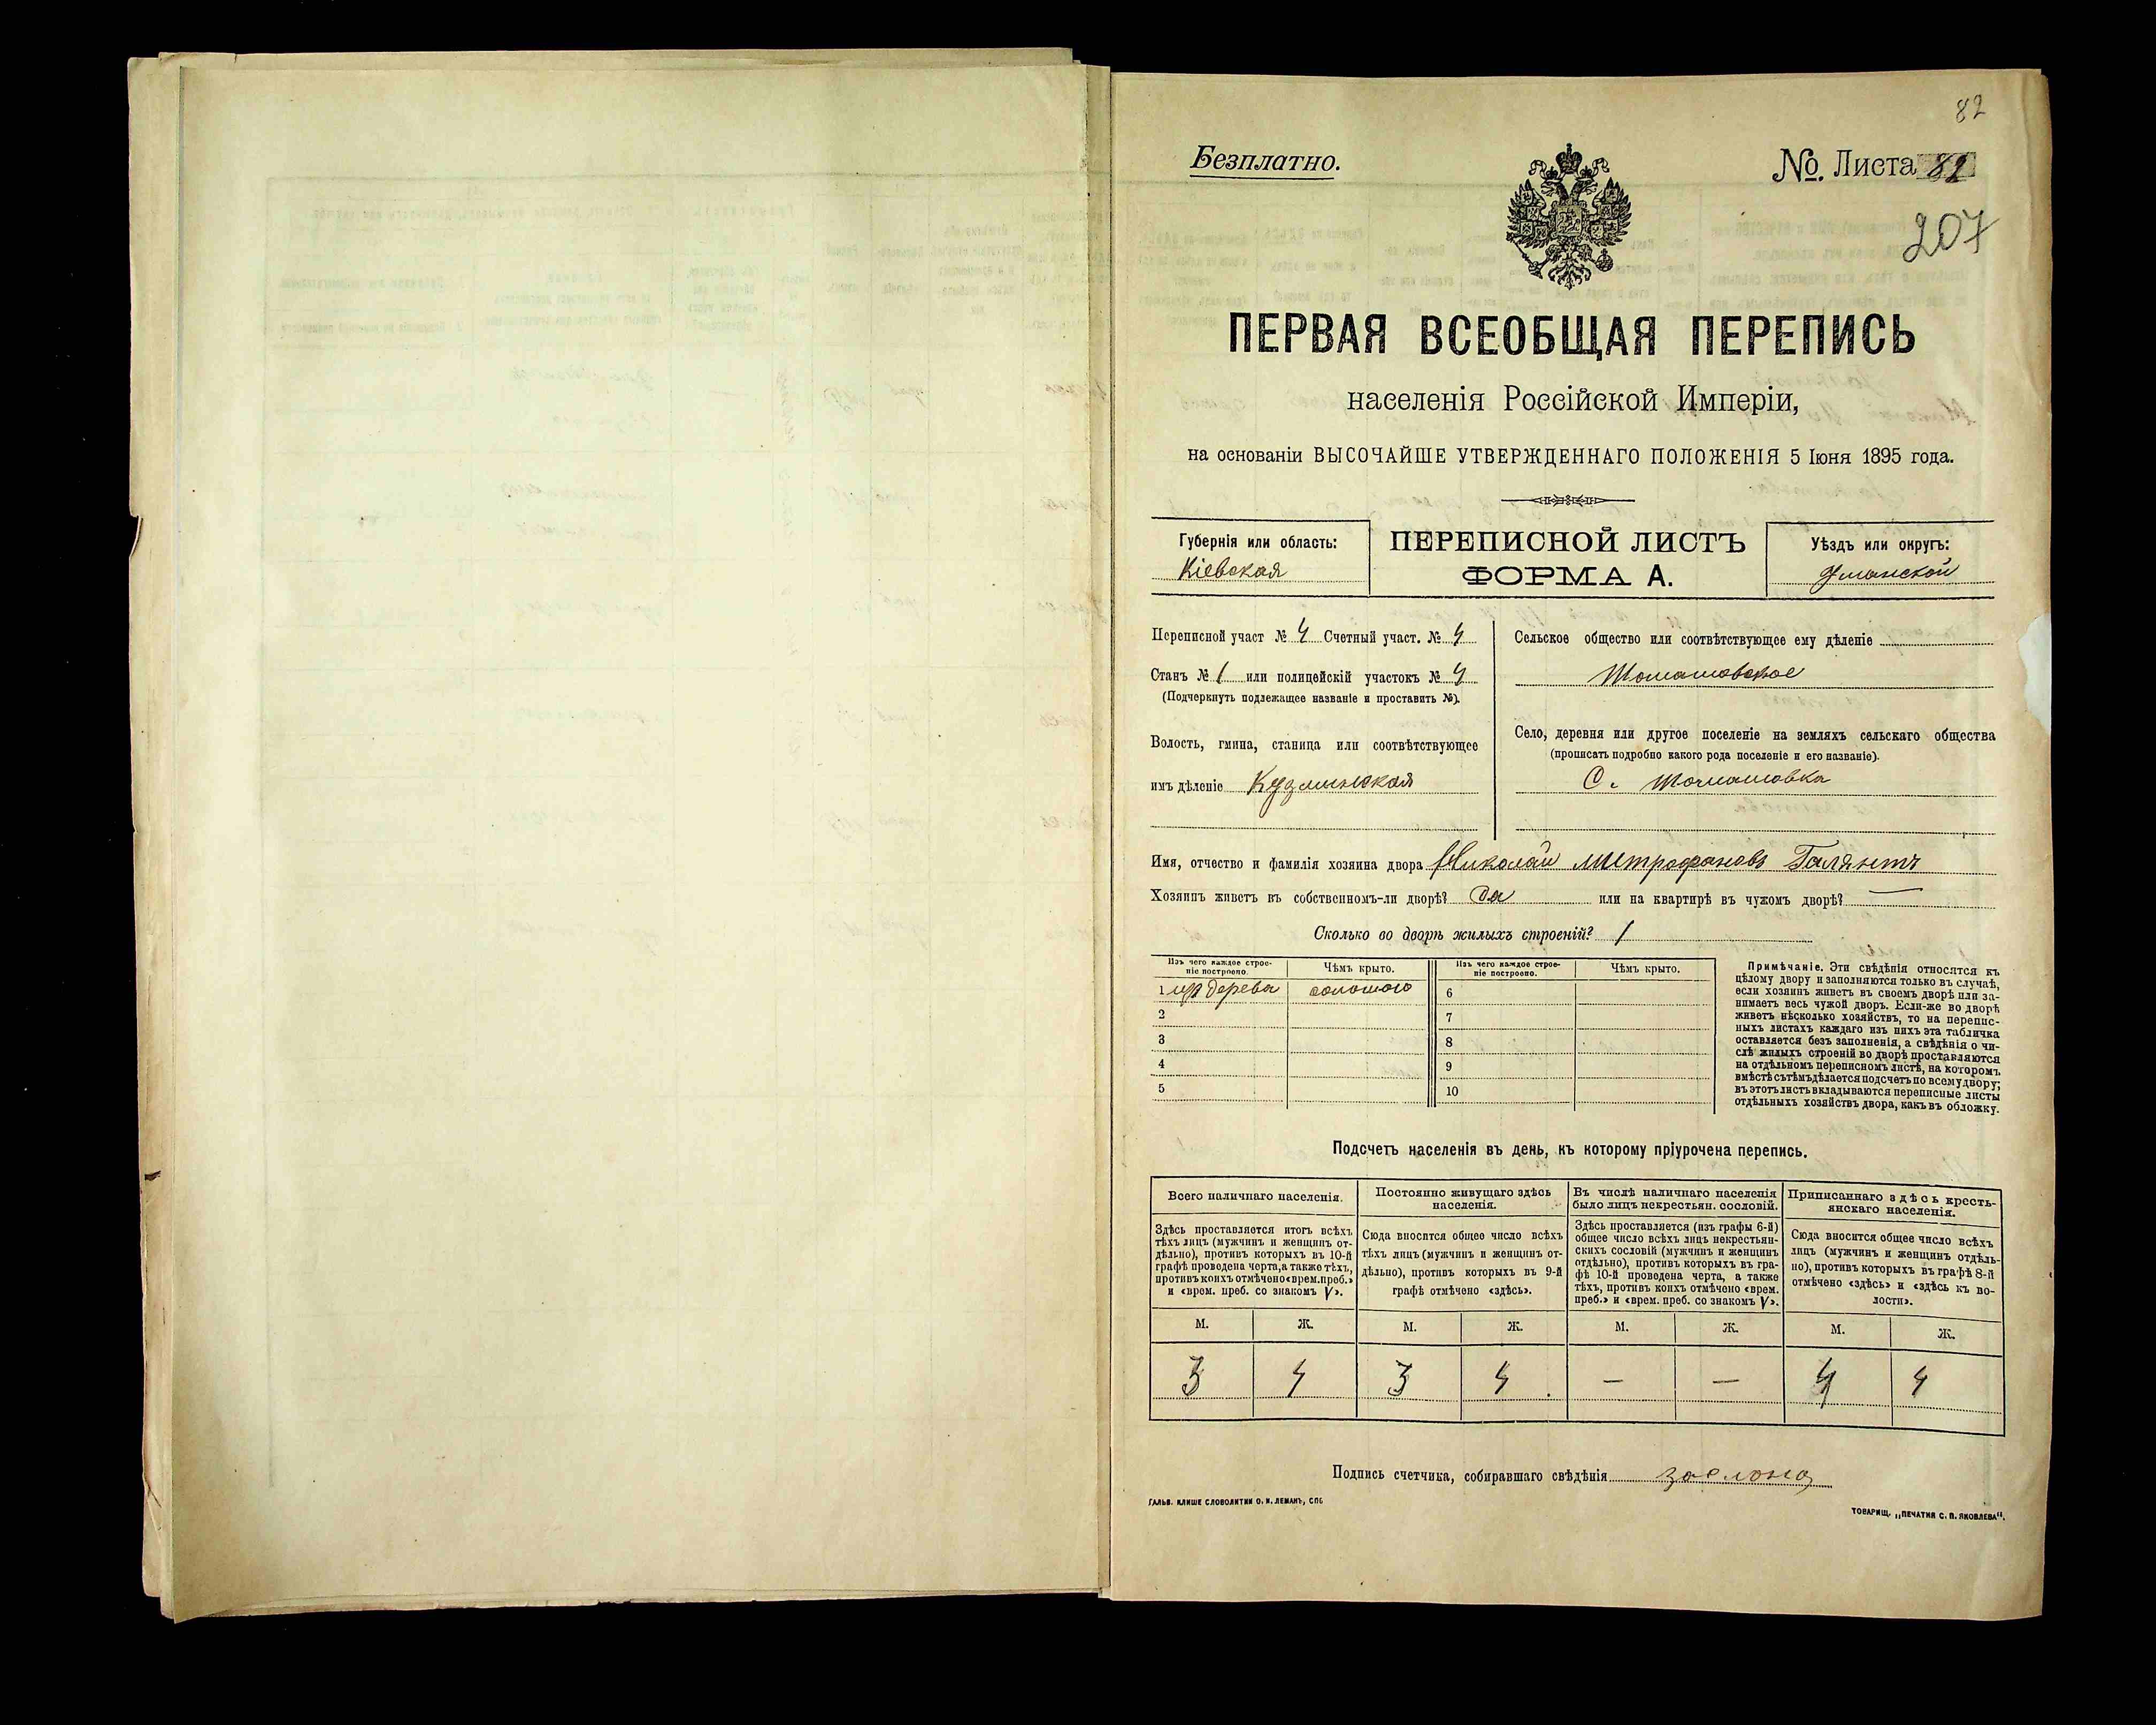 82
Безплатно.
№. Листа 82
207
ПЕРВАЯ ВСЕОБЩАЯ ПЕРЕПИСЬ
населенія Россійской Имперіи,
на основаніи ВЫСОЧАЙШЕ УТВЕРЖДЕННАГО ПОЛОЖЕНІЯ 5 Іюня 1895 года.
Губернія или область:
Кіевская
ПЕРЕПИСНОЙ ЛИСТЪ
ФОРМА А.
Уѣздъ или округъ:
Уманской
Переписной участ № 4 Счетный участ. № 4
Станъ № 1 или полицейскій участокъ № 4
(Подчеркнуть подлежащее названіе и проставить №).
Волость, гмина, станица или соотвѣтствующее
имъ дѣленіе Кузминская
Сельское общество или соотвѣтствующее ему дѣленіе
Томашовское
Село, деревня или другое поселеніе на земляхъ сельскаго общества
(прописать подробно какого рода поселеніе и его названіе).
С. Томашовка
Имя, отчество и фамилія хозяина двора Николай Митрофановъ Галянтъ
Хозяинъ живетъ въ собственномъ-ли дворѣ? да или на квартирѣ въ чужомъ дворѣ? —
Сколько во дворѣ жилыхъ строеній? 1
Изъ чего каждое строе-
ніе построено.
Чѣмъ крыто.
Изъ чего каждое строе-
ніе построено.
Чѣмъ крыто.
1 изъ дерева соломою
2
3
4
5
6
7
8
9
10
Примѣчаніе. Эти свѣдѣнія относятся къ
цѣлому двору и заполняются только въ случаѣ,
если хозяинъ живетъ въ своемъ дворѣ или за-
нимаетъ весь чужой дворъ. Если-же во дворѣ
живетъ нѣсколько хозяйствъ, то на перепис-
ныхъ листахъ каждаго изъ нихъ эта табличка
оставляется безъ заполненія, а свѣдѣнія о чи-
слѣ жилыхъ строеній во дворѣ проставляются
на отдѣльномъ переписномъ листѣ, на которомъ
вмѣстѣ съ тѣмъ дѣлается подсчетъ по всему двору;
въ этотъ листъ вкладываются переписные листы
отдѣльныхъ хозяйствъ двора, какъ въ обложку.
Подсчетъ населенія въ день, къ которому пріурочена перепись.
Всего наличнаго населенія.
Здѣсь проставляется итогъ всѣхъ
тѣхъ лицъ (мужчинъ и женщинъ от-
дѣльно), противъ которыхъ въ 10-й
графѣ проведена черта, а также тѣхъ,
противъ коихъ отмѣчено «врем. преб.»
и «врем. преб. со знакомъ V».
Постоянно живущаго здѣсь
населенія.
Сюда вносится общее число всѣхъ
тѣхъ лицъ (мужчинъ и женщинъ от-
дѣльно), противъ которыхъ въ 9-й
графѣ отмѣчено «здѣсь».
Въ числѣ наличнаго населенія
было лицъ некрестьян. сословій.
Здѣсь проставляется (изъ графы 6-й)
общее число всѣхъ лицъ некрестьян-
скихъ сословій (мужчинъ и женщинъ
отдѣльно), противъ которыхъ въ гра-
фѣ 10-й проведена черта, а также
тѣхъ, противъ коихъ отмѣчено «врем.
преб.» и «врем. преб. со знакомъ V».
Приписаннаго здѣсь кресть-
янскаго населенія.
Сюда вносится общее число всѣхъ
лицъ (мужчинъ и женщинъ отдѣль-
но), противъ которыхъ въ графѣ 8-й
отмѣчено «здѣсь» и «здѣсь къ во-
лости».
М. Ж. М. Ж. М. Ж. М. Ж.
3 4 3 4 — — 4 4
Подпись счетчика, собиравшаго свѣдѣнія
ГАЛЬВ. КЛИШЕ СЛОВОЛИТНИ О. И. ЛЕМАНЪ, СПБ
ТОВАРИЩ. „ПЕЧАТНЯ С. П. ЯКОВЛЕВА“.